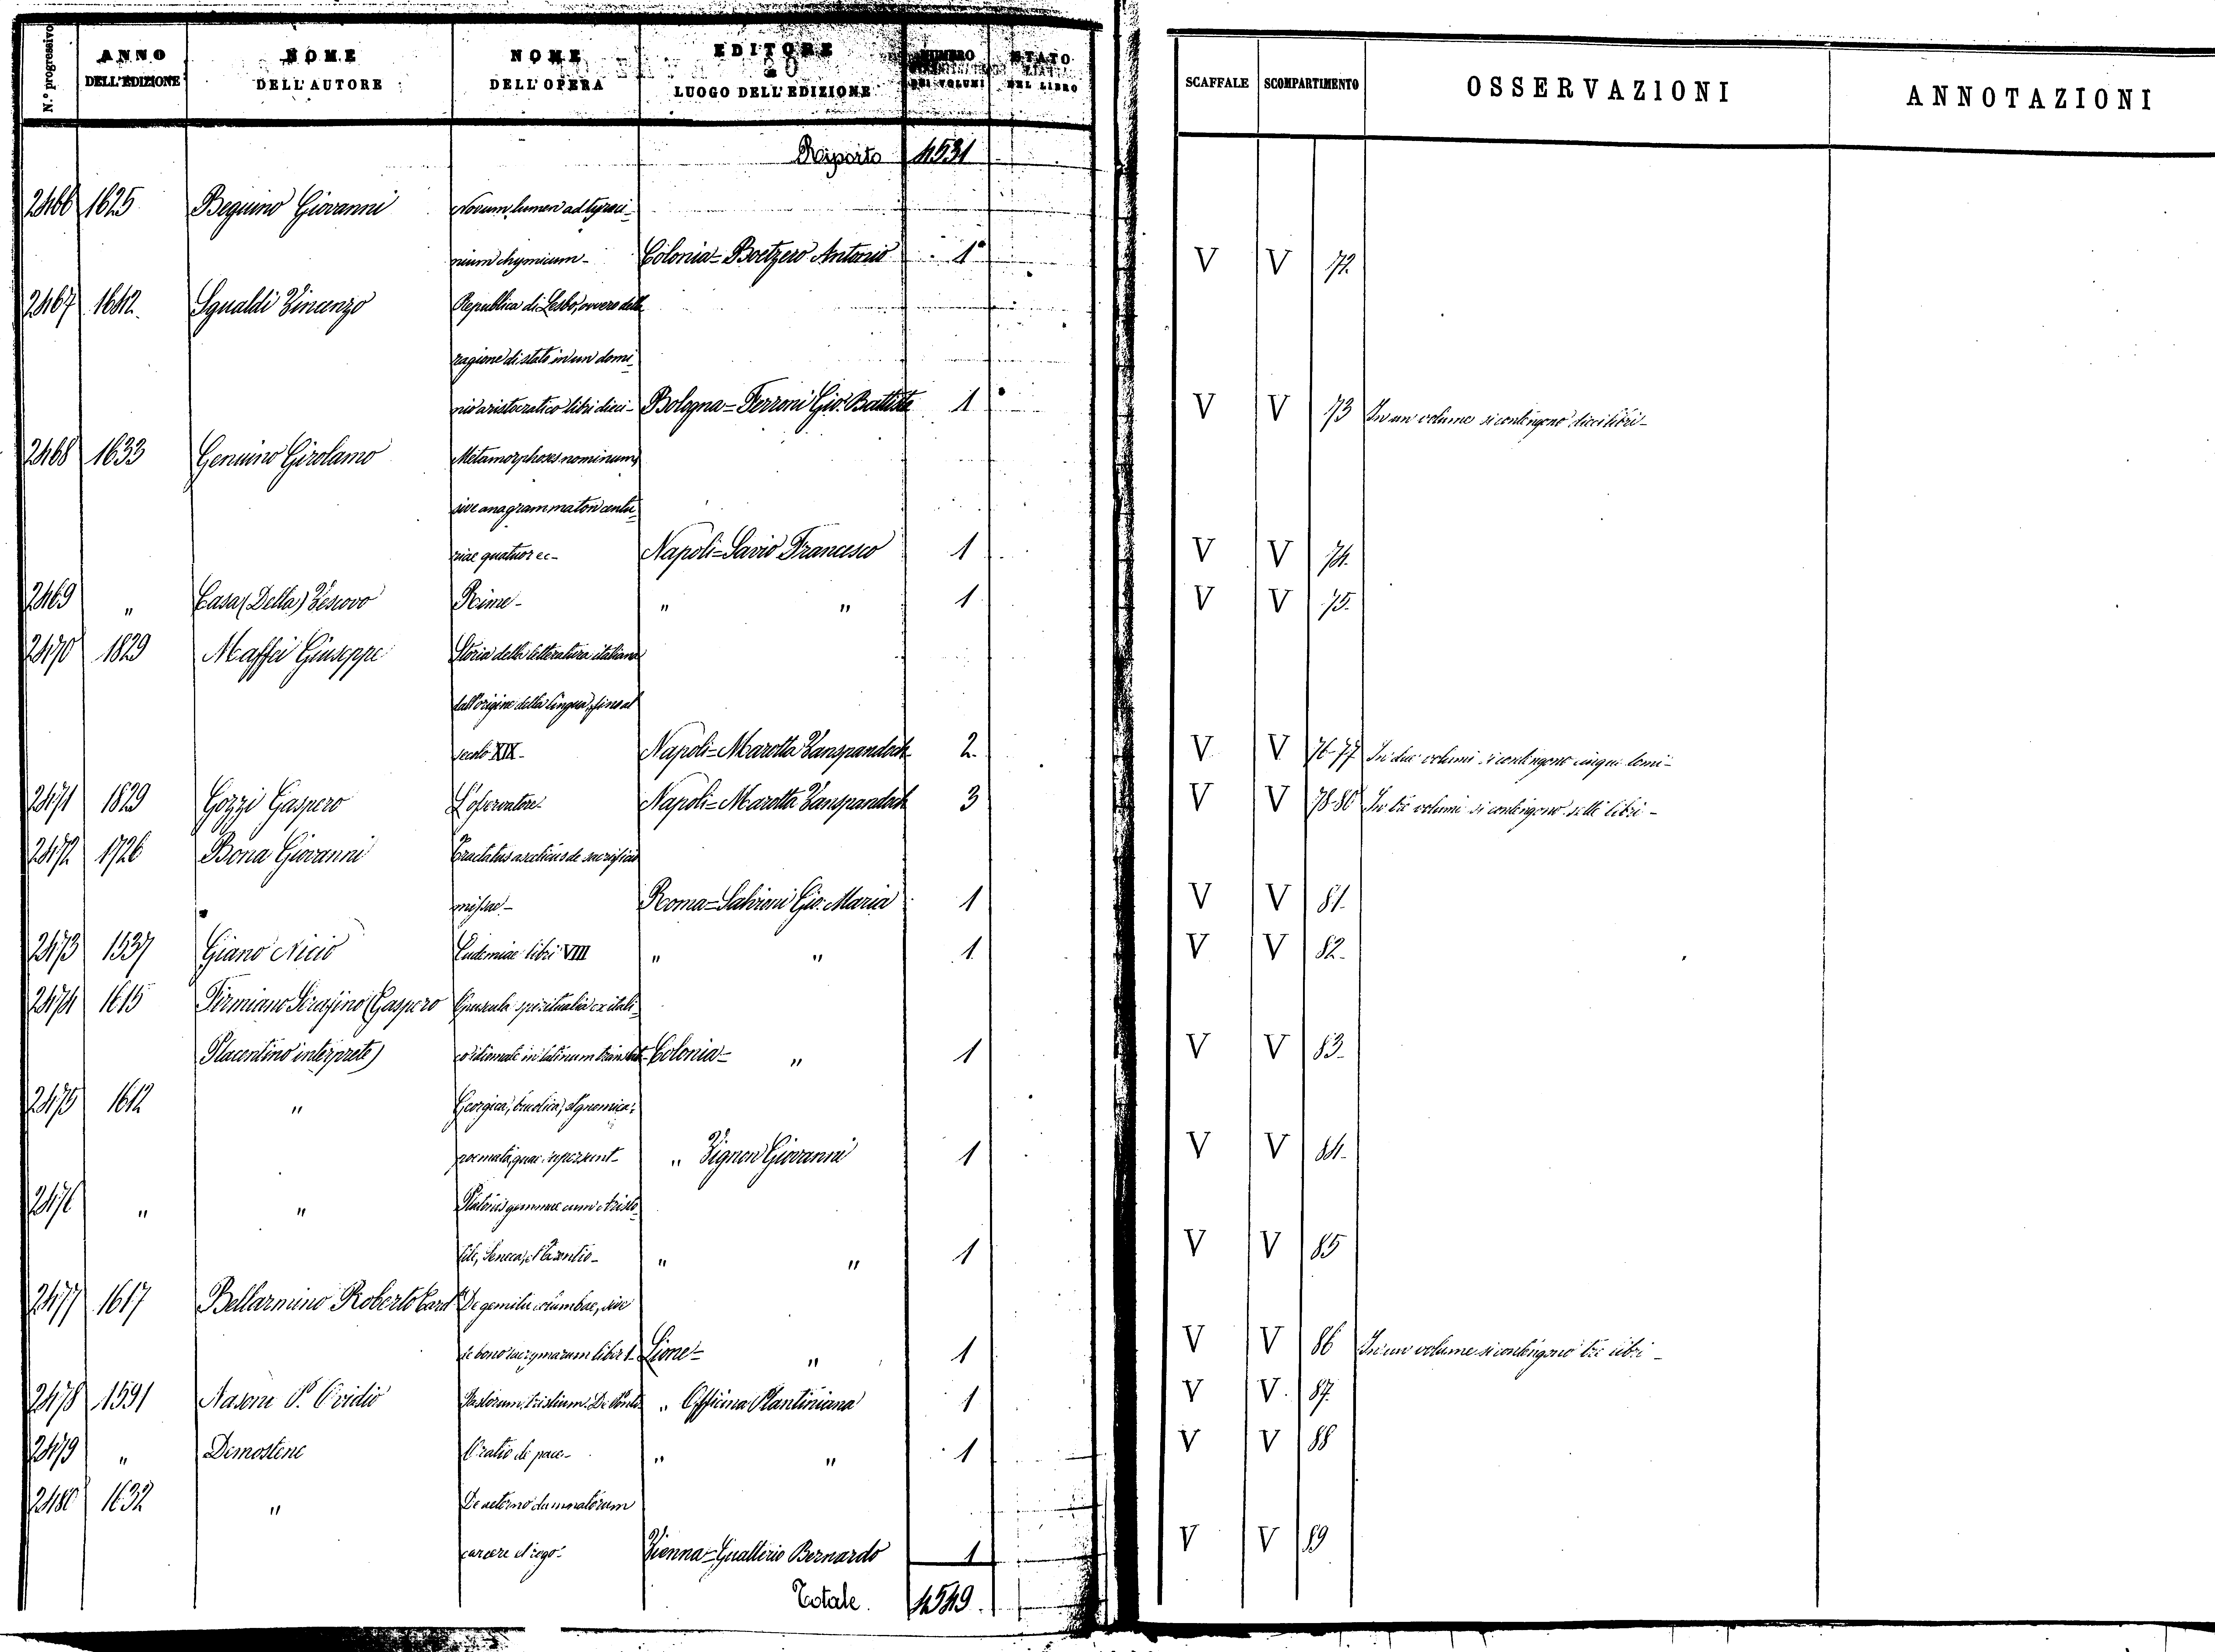 N.° progressivo | ANNO DELL'EDIZIONE | NOME DELL'AUTORE | NOME DELL'OPERA | EDITORE e LUOGO DELL'EDIZIONE | NUMERO DEI VOLUMI | STATO DEL LIBRO | SCAFFALE | SCOMPARTIMENTO | OSSERVAZIONI | ANNOTAZIONI
Riporto 4531
2466 1625 Beguino Giovanni Novum lumen ad tyroci-
nium chymicum- Colonia= Boetzero Antonio 1 V V 72.
2467 1642. Sgualdi Vincenzo Republica di Lesbo, ovvero della
ragione di stato in un domi-
nio aristocratico libri dieci- Bologna= Ferroni Gio: Battista 1 V V 73 In un volume si contengono dieci libri-
2468 1633 Genuino Girolamo Metamorphoses nominum,
sive anagrammaton centu-
riae quatuor ec- Napoli= Savio Francesco 1 V V 74.
2469 " Casa (Della) Vescovo Rime- " " 1 V V 75.
2470 1829 Maffei Giuseppe Storia della letteratura italiana
dall'origine della lingua, fino al
secolo XIX- Napoli= Marotta Vanspandoch 2. V V 76-77 In due volumi si contengono cinque tomi-
2471 1829 Gozzi Gaspero L'osservatore- Napoli= Marotta Vanspandoch 3 V V 78-80 In tre volumi si contengono sette libri-
2472 1726 Bona Giovanni Tractatus asceticus de sacrificio
missae- Roma= Salvioni Gio: Maria 1 V V 81.
2473 1537 Giano Nicio Eudemiae libri VIII " " 1. V V 82.
2474 1615 Firmiano Serafino (Gaspero Opuscula spiritualia ex itali-
Placentino interprete) co idiomate in latinum translat- Colonia- " 1 V V 83.
2475 1612 " Georgica, bucolica, et gnomica:
poemata, quae supersunt- " Vignon Giovanni 1 V V 84.
2476 " " Platonis gemmae cum Aristo-
tile, Seneca, et Terentio- " " 1 V V 85
2477 1617 Bellarmino Roberto Card De gemitu columbae, sive
de bono lacrymarum libri 1- Lione- " 1 V V 86 In un volume si contengono tre libri-
2478 1591 Nasone P. Ovidio Fastorum. tristium. De Ponto " Officina Plantiniana 1 V V. 87.
2479 " Demostene Oratio de pace- " " 1 V V 88
2480 1632 " De aeterno damnatorum
carcere et rogo- Vienna= Gualterio Bernardo 1 V V 89
Totale. 4549.